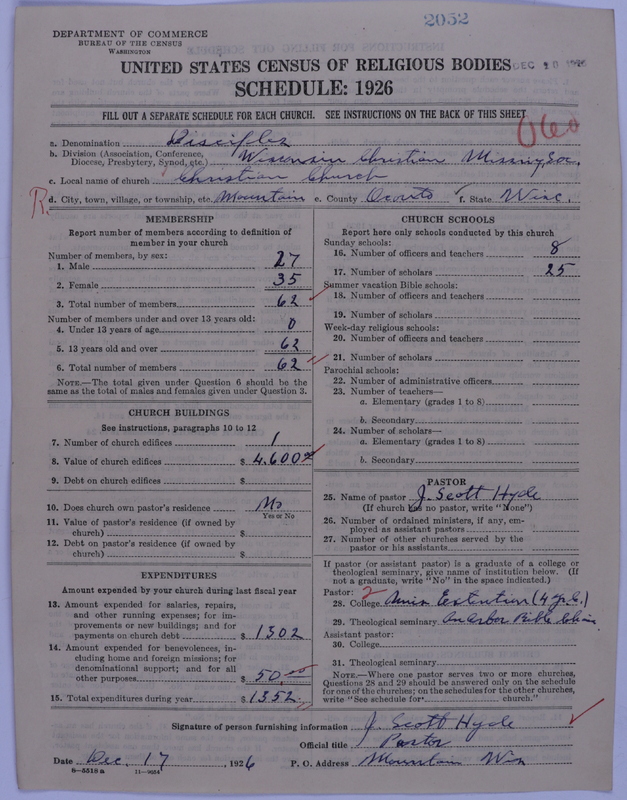 2052
DEPARTMENT OF COMMERCE
BUREAU OF THE CENSUS
WASHINGTON
DEC 20 1926
UNITED STATES CENSUS OF RELIGIOUS BODIES
SCHEDULE: 1926
FILL OUT A SEPARATE SCHEDULE FOR EACH CHURCH. SEE INSTRUCTIONS ON THE BACK OF THIS SHEET
060
a. Denomination Disciples
b. Division (Association, Conference, Diocese, Presbytery, Synod, etc.) Wisconsin Christian Missiny Soc.
c. Local name of church Christian Church
R. d. City, town, village, or township, etc. Mountain e. County Oconto f. State Wisc.
MEMBERSHIP
Report number of members according to definition of
member in your church
Number of members, by sex:
1. Male 27
2. Female 35
3. Total number of members 62
Number of members under and over 13 years old:
4. Under 13 years of age 0
5. 13 years old and over 62
6. Total number of members 62
NOTE.—The total given under Question 6 should be the
same as the total of males and females given under Question 3.
CHURCH BUILDINGS
See instructions, paragraphs 10 to 12
7. Number of church edifices 1
8. Value of church edifices $ 4,600 00
9. Debt on church edifices $
10. Does church own pastor's residence No
Yes or No
11. Value of pastor's residence (if owned by
church) $
12. Debt on pastor's residence (if owned by
church) $
EXPENDITURES
Amount expended by your church during last fiscal year
13. Amount expended for salaries, repairs,
and other running expenses; for im-
provements or new buildings; and for
payments on church debt $ 1302
14. Amount expended for benevolences, in-
cluding home and foreign missions; for
denominational support; and for all
other purposes $ 50.00
15. Total expenditures during year $ 1352.
CHURCH SCHOOLS
Report here only schools conducted by this church
Sunday schools:
16. Number of officers and teachers 8
17. Number of scholars 25
Summer vacation Bible schools:
18. Number of officers and teachers
19. Number of scholars
Week-day religious schools:
20. Number of officers and teachers
21. Number of scholars
Parochial schools:
22. Number of administrative officers
23. Number of teachers—
a. Elementary (grades 1 to 8)
b. Secondary
24. Number of scholars—
a. Elementary (grades 1 to 8)
b. Secondary
PASTOR
25. Name of pastor J. Scott Hyde
(If church has no pastor, write "None")
26. Number of ordained ministers, if any, em-
ployed as assistant pastors
27. Number of other churches served by the
pastor or his assistants
If pastor (or assistant pastor) is a graduate of a college or
theological seminary, give name of institution below. (If
not a graduate, write "No" in the space indicated.)
Pastor: 2
28. College Extention (4 yrs.)
29. Theological seminary Bible
Assistant pastor:
30. College
31. Theological seminary
NOTE.—Where one pastor serves two or more churches,
Questions 28 and 29 should be answered only on the schedule
for one of the churches; on the schedules for the other churches,
write "See schedule for church."
Signature of person furnishing information J. Scott Hyde
Official title Pastor
Date Dec. 17, 1926 P. O. Address Mountain Wis
8—5518 a 11—9054